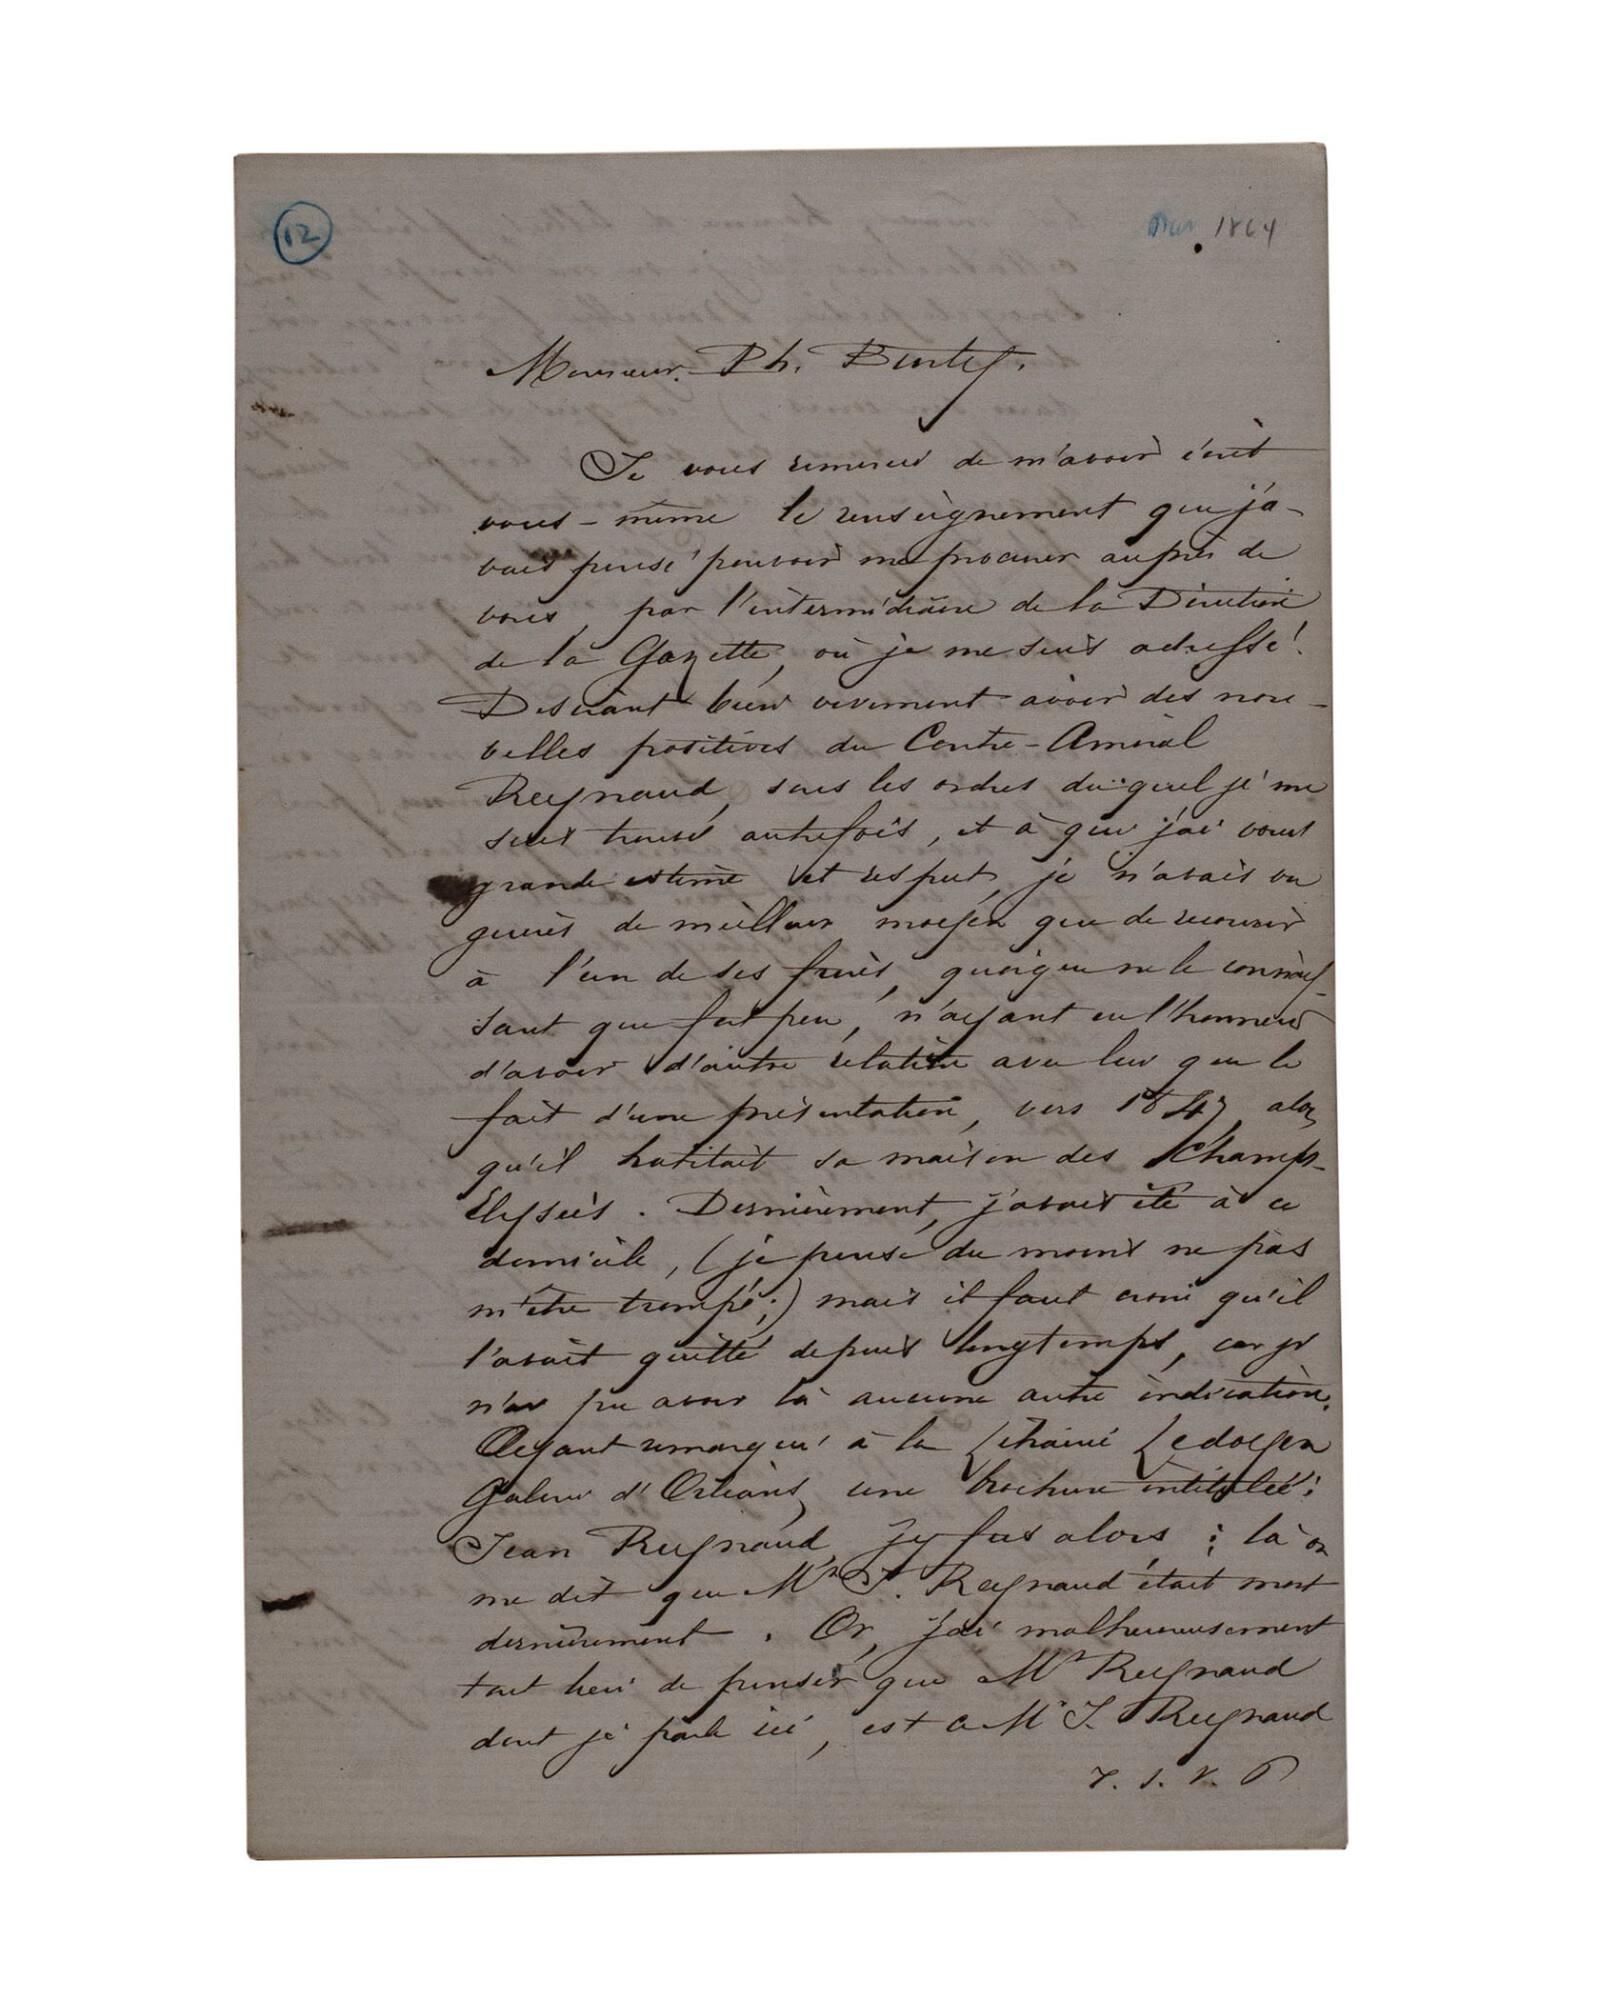 12
1864
Monsieur. Ph. Burty.
Je vous remercie de m'avoir écrit
vous-même le renseignement que j'a-
vais pensé pouvoir me procurer auprès de
vous, par l'intermédiaire de la Direction
de la Gazette, où je me suis adressé.
Desirant bien vivement avoir des nou-
velles positives du Contre-Amiral
Reynaud, sous les ordres duquel je me
suis trouvé autrefois, et à qui j'ai voué
grande estime et respect, je n'avais vu
guères de meilleur moyen que de recourir
à l'un de ses frères, quoique ne le connais-
sant que fort peu, n'ayant eu l'honneur
d'avoir d'autre relation avec lui que le
fait d'une présentation, vers 1847, alors
qu'il habitait sa maison des Champs-
Elysées. Dernièrement, j'avais été à ce
domicile, (je pense du moins ne pas
m'être trompé;) mais il faut croire qu'il
l'avait quitté depuis longtemps, car je
n'ai pu avoir là aucune autre indication.
Ayant remarqué à la Librairie Ledoyen
Galerie d'Orléans, une brochure intitulée:
Jean Reynaud, j'y fus alors: là on
me dit que Mr J. Reynaud était mort
dernièrement. Or, j'ai malheureusement
tout lieu de penser que Mr Reynaud
dont je parle ici, est ce Mr J. Reynaud
T. S. V. P